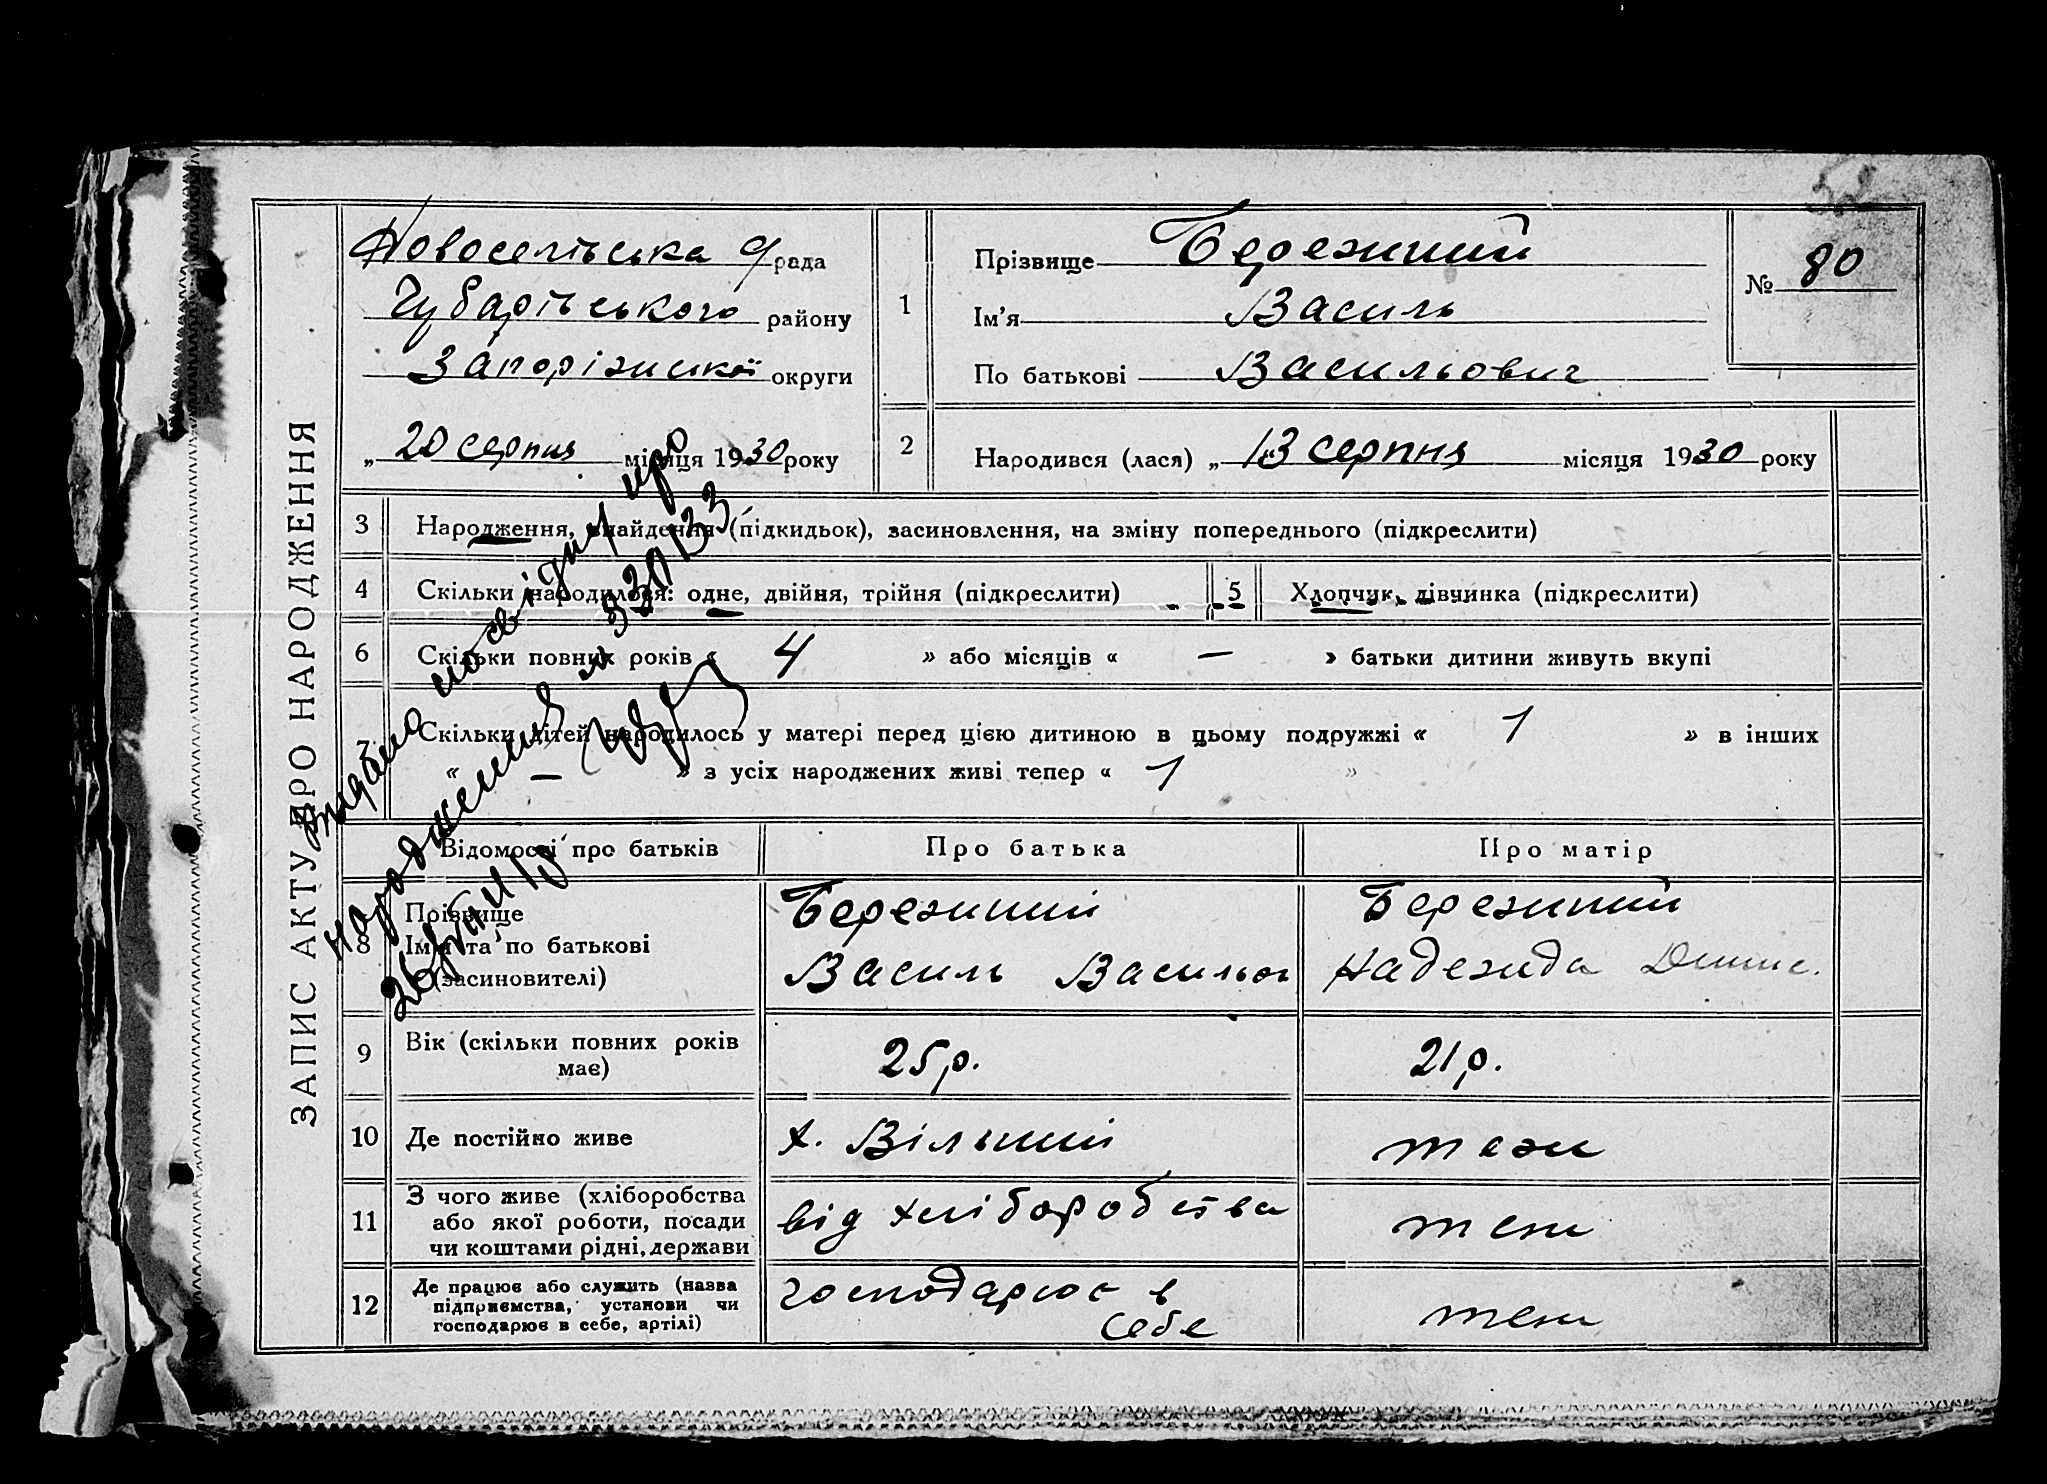 52
ЗАПИС АКТУ ПРО НАРОДЖЕННЯ
Новоселівська рада
Чубарівського району
Запоріжської округи
„ 20 серпня місяця 1930 року
1
Прізвище Бережний
Ім'я Василь
По батькові Васильович
№ 80
2
Народився (лася) „ 13 серпня місяця 1930 року
3 Народження, знайдення (підкидьок), засиновлення, на зміну попереднього (підкреслити)
4 Скільки народилося: одне, двійня, трійня (підкреслити)
5 Хлопчик, дівчинка (підкреслити)
6 Скільки повних років « 4 » або місяців « — » батьки дитини живуть вкупі
Скільки дітей народилось у матері перед цією дитиною в цьому подружжі « 1 » в інших
« — » з усіх народжених живі тепер « 1 »
Відомості про батьків Про батька Про матір
8
Прізвище
Ім'я та по батькові
(засиновителі)
Бережний
Василь Васильов
Бережний
Надежда Денис.
9 Вік (скільки повних років
має)
25 р.
21 р.
10 Де постійно живе
х. Вільний
теж
11
З чого живе (хліборобства
або якої роботи, посади
чи коштами рідні, держави
від хліборобства
теж
12
Де працює або служить (назва
підприємства, установи чи
господарює в себе, артілі)
господарює в
себе
теж
Видано посвідку про
народження